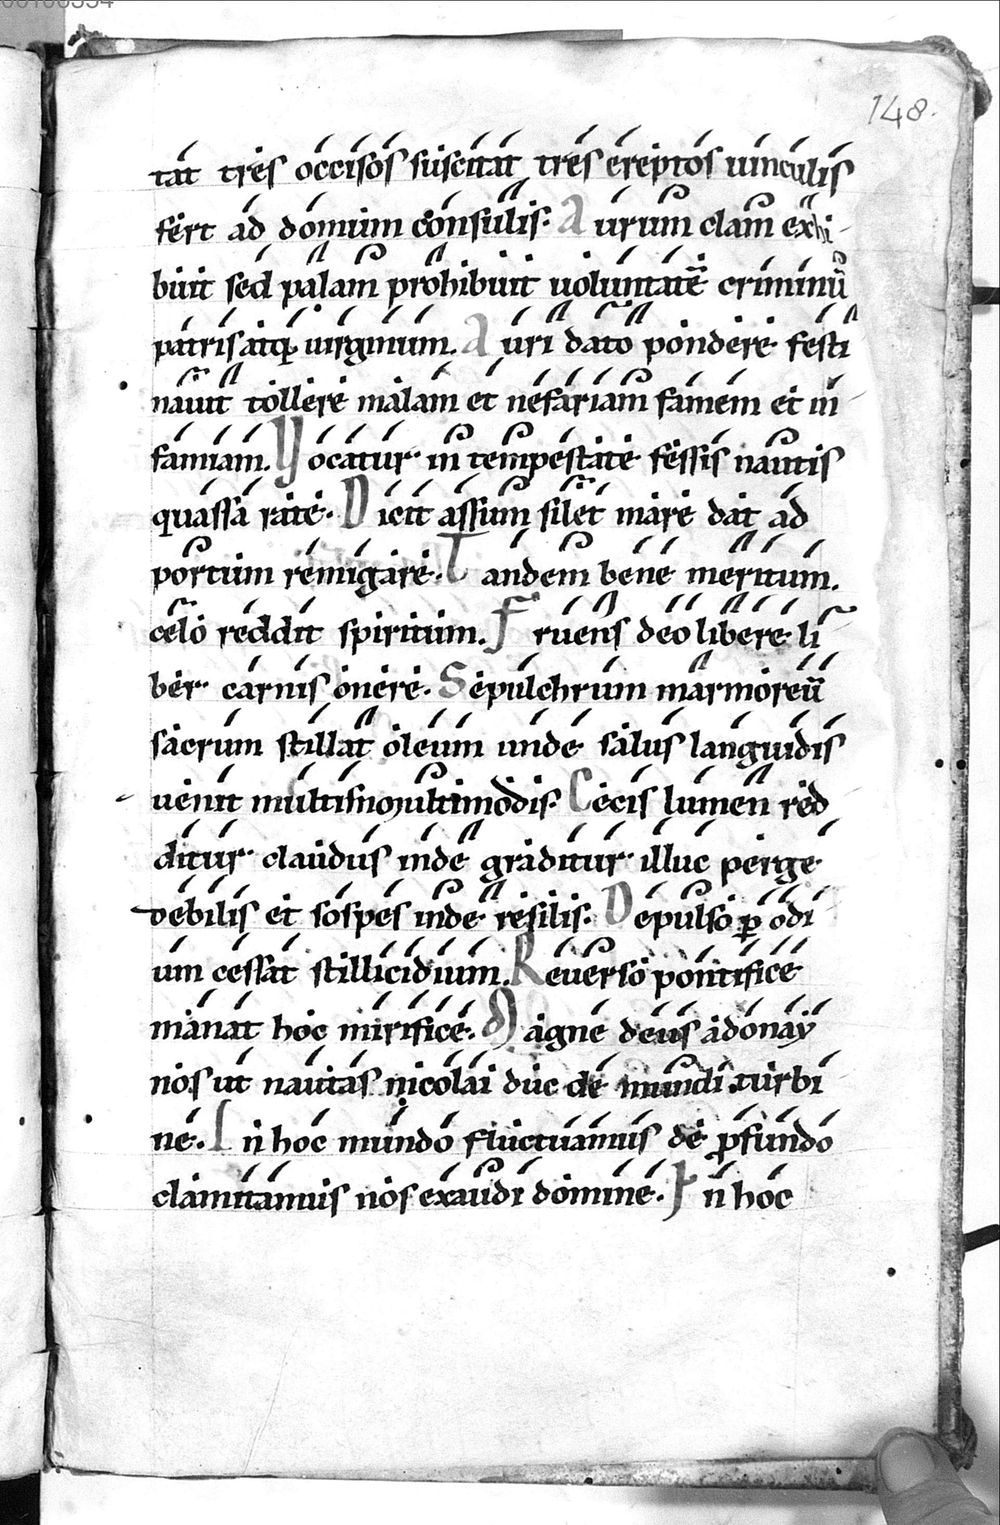 148.
tat tres occisos suscitat tres ereptos uinculis
fert ad domum consulis. Aurum clam exhi-
buit sed palam prohibuit uoluntatē criminū
patris atq; uirginum. Auri dato pondere festi
nauit tollere malam et nefariam famem et in
famiam. Vocatur in tempestate fessis nautis
quassa rate. Dicit assum silet mare dat ad
portum remigare. Tandem bene meritum.
celo reddit spiritum. Fruens deo libere li
ber carnis onere. Sepulchrum marmoreū
sacrum stillat oleum unde salus languidis
uenit multis multimodis. Cecis lumen red
ditur claudus inde graditur illuc perge
debilis et sospes inde resilis. Depulso ꝑ odi
um cessat stillicidium. Reuerso pontifice
manat hoc mirifice. Magne deus adonay
nos ut nautas nicolai duc de mundi turbi
ne. In hoc mundo fluctuamus de ꝓfundo
clamitamus nos exaudi domine. In hoc